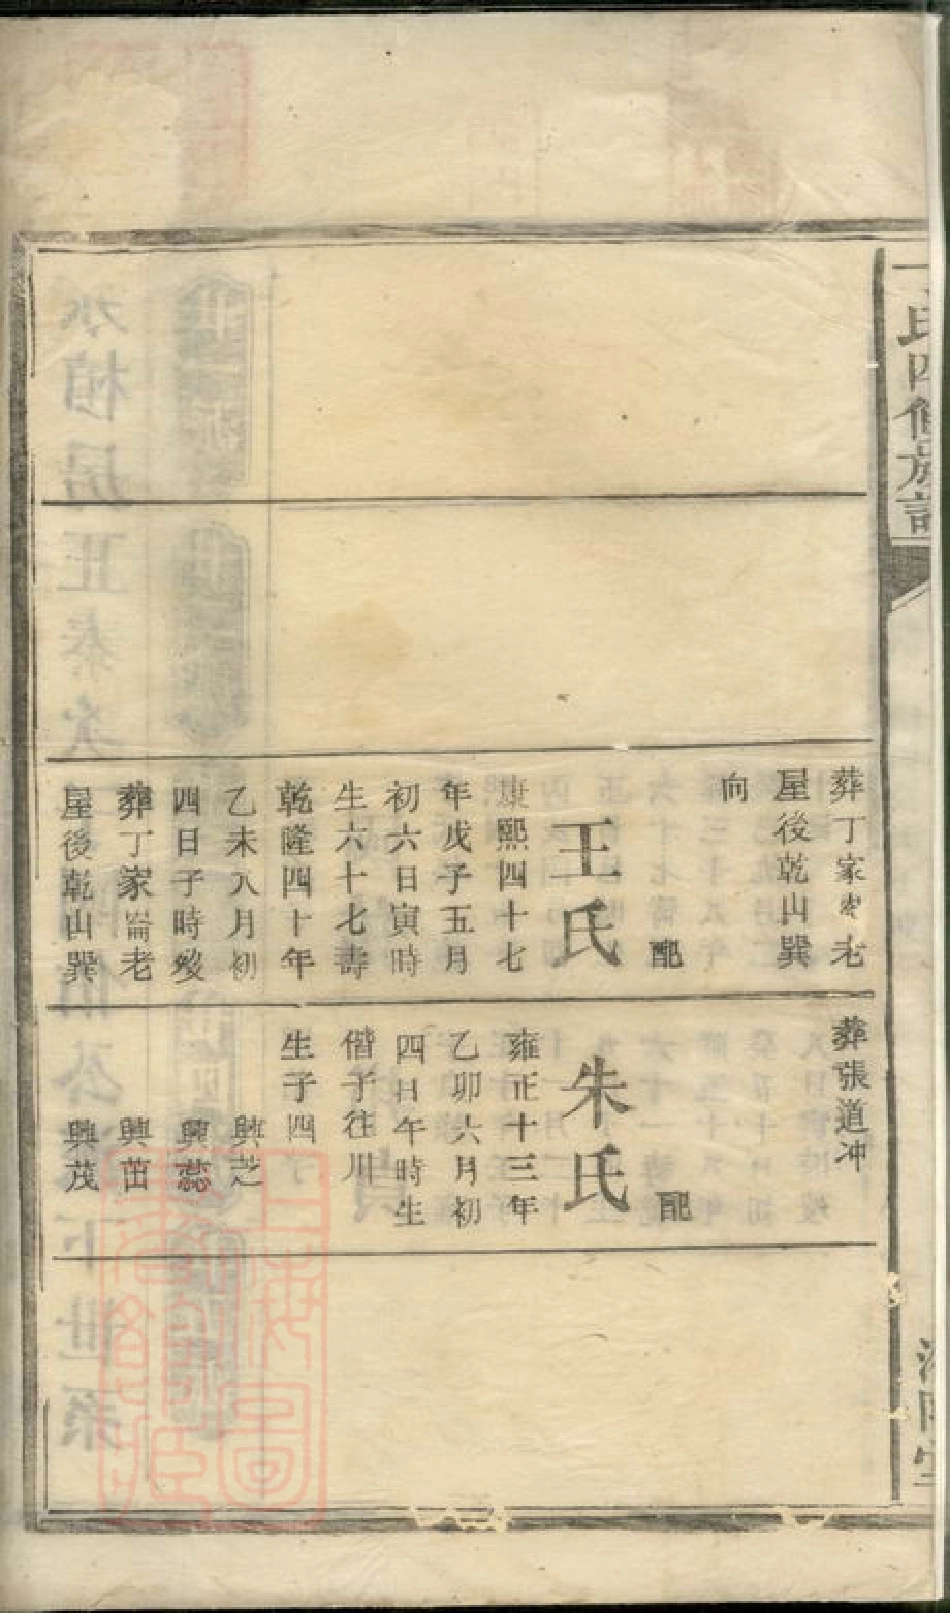 氏四修族譜
葬丁家崙老
屋後乾山巽
向
配
王氏
康熙四十七
年戊子五月
初六日寅時
生六十七壽
乾隆四十年
乙未八月初
四日子時歿
葬丁家崙老
屋後乾山巽
葬張道冲
配
朱氏
雍正十三年
乙卯六月初
四日午時生
偕子往川
生子四
興芝
興蕊
興茁
興茂
堂